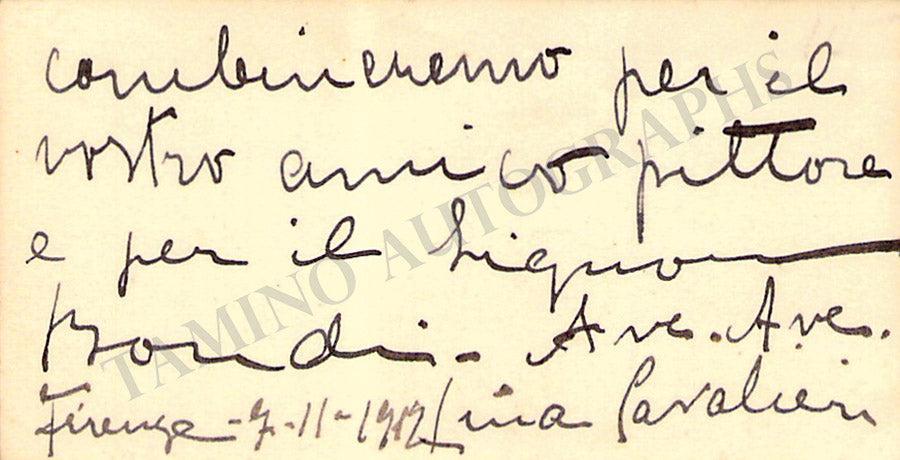 combineremo per il
vostro amico pittore
e per il Signor
Bondi. Ave. Ave.
Firenze - 7-11-1912 Lina Cavalieri
TAMINO AUTOGRAPHS